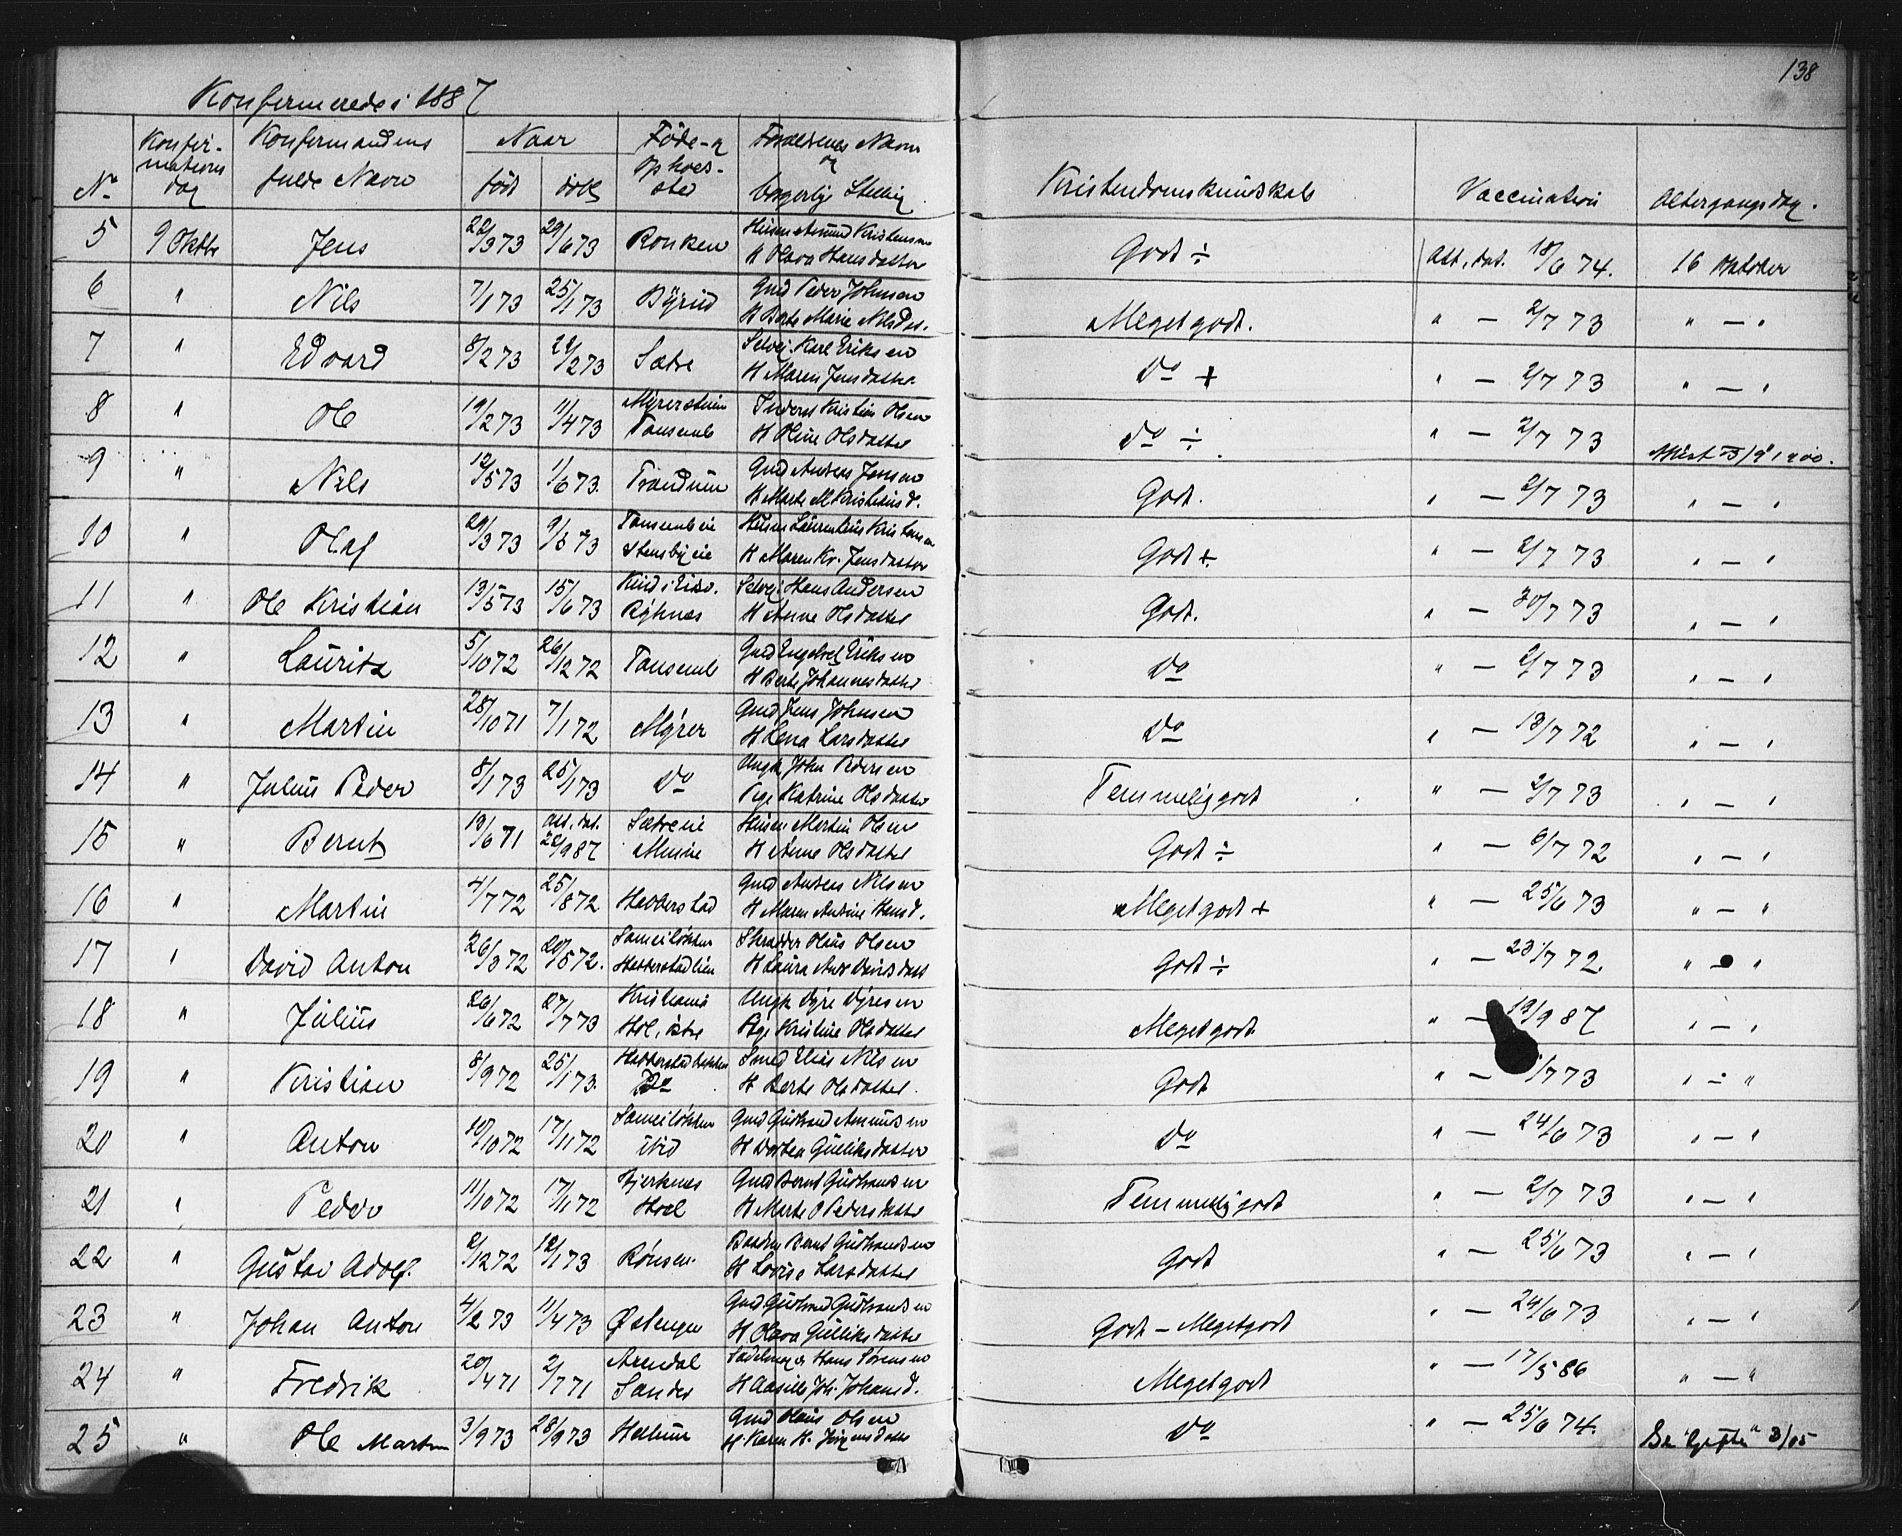 138
Konfirmerede i 1887
No Konfirmations dag Konfirmandens fulde Navn Naar født døbt Føde- og Opholdssted Forældrenes Navn og borgerlige Stilling Kristendomskundskab Vaccination Altergangsdag.
5 9 Oktbr Jens 22/3 73 29/6 73 Ronken Husm Amund Kristensen H Olava Hansdatter Godt ÷ Att. dat. 18/6 74. 16 Oktober
6 " Nils 7/1 73 25/1 73 Byrud Gmd Peder Johnsen H Berte Marie Nilsdat. Megetgodt. " — 2/7 73 " — "
7 " Edvard 8/2 73 22/2 73 Sætre Selvej. Karl Eriksen H Maren Jensdatter Do + " — 2/7 73 " — "
8 " Ole 19/2 73 11/4 73 Tønsemb Kristian Olsen H Oline Olsdatter Do ÷ " — 2/7 73
9 " Nils 12/5 73 1/6 73 Trandum Gmd Anders Jensen H Marte M Kristiansd. Godt. " — 2/7 73 " — "
10 " Olaf 29/3 73 9/6 73 Tønsembeie Stensbyeie Husm Laurentius Kristensen H Maren Kr. Jensdatter Godt + " — 2/7 73 " — "
11 " Ole Kristian 13/5 73 15/6 73 Røknes Selvej. Hans Andersen H Anne Olsdatter Godt. " — 30/7 73 " — "
12 " Lauritz 5/10 72 26/12 72 Tønsemb Gmd Engebret Eriksen H Berte Johannesdatter Do " — 2/7 73 " — "
13 " Martin 28/10 71 7/1 72 Myrer Gmd Jens Johnsen H Lena Larsdatter Do " — 13/7 72 " — "
14 " Julius Peder 8/1 73 25/1 73 Do Ungk John Pedersen Pige Katrine Olsdatter Temmelig godt " — 2/7 73 " — "
15 " Bernt 13/6 71 Att. dat. 22/9 87 Sætreeie Husm Martin Olsen H Anne Olsdatter Godt ÷ " — 6/7 72 " — "
16 " Martin 4/7 72 25/8 72 Habberstad Gmd Anders Nilsen H Maren Andrine Hansd. Megetgodt + " — 25/6 73 " — "
17 " David Anton 26/3 72 20/5 72. Habberstadeien Skrædder Olaus Olsen H Laura Godt ÷ " — 23/7 72 " — "
18 " Julius 26/6 72 27/7 73 Kristiania Hol, østre Ungk Dyre Dyresen Pige Kristine Olsdatter Megetgodt " — 19/9 87 " — "
19 " Kristian 8/9 72 25/1 73 Habberstadbakken Do Smed Elias Nilsen H Berte Olsdatter. Godt " — /7 73 " — "
20 " Anton 10/10 72 17/11 72 ibid Gmd Gudbrand Amundsen H Dorthea Gulliksdatter Do " — 24/6 73 " — "
21 " Peder 11/10 72 17/11 72 Bjerknes Hoel Gmd Bernt Gudbrandsen H Marte O Pedersdatter Temmelig godt " — 2/7 73 " — "
22 " Gustav Adolf. 2/12 72 12/1 73 Rønsen. Bernt Gudbrandsen H Lovise Larsdatter Godt " — 25/6 73 " — "
23 " Johan Anton 4/2 73 11/4 73 Østengen Gmd Gudbrand Gudbrandsen H Olava Gulliksdatter Godt — Megetgodt " — 24/6 73 " — "
24 " Fredrik 20/4 71 2/7 71 Arendal Sander Sadelmager Hans Sørensen H Johansd. Megetgodt " — 17/5 86 " — "
25 " Ole Martin 3/9 73 28/9 73 Hellum Gmd Olaus Olsen H. Karen H. Jørgensdatter Do " — 25/6 74. 3/05